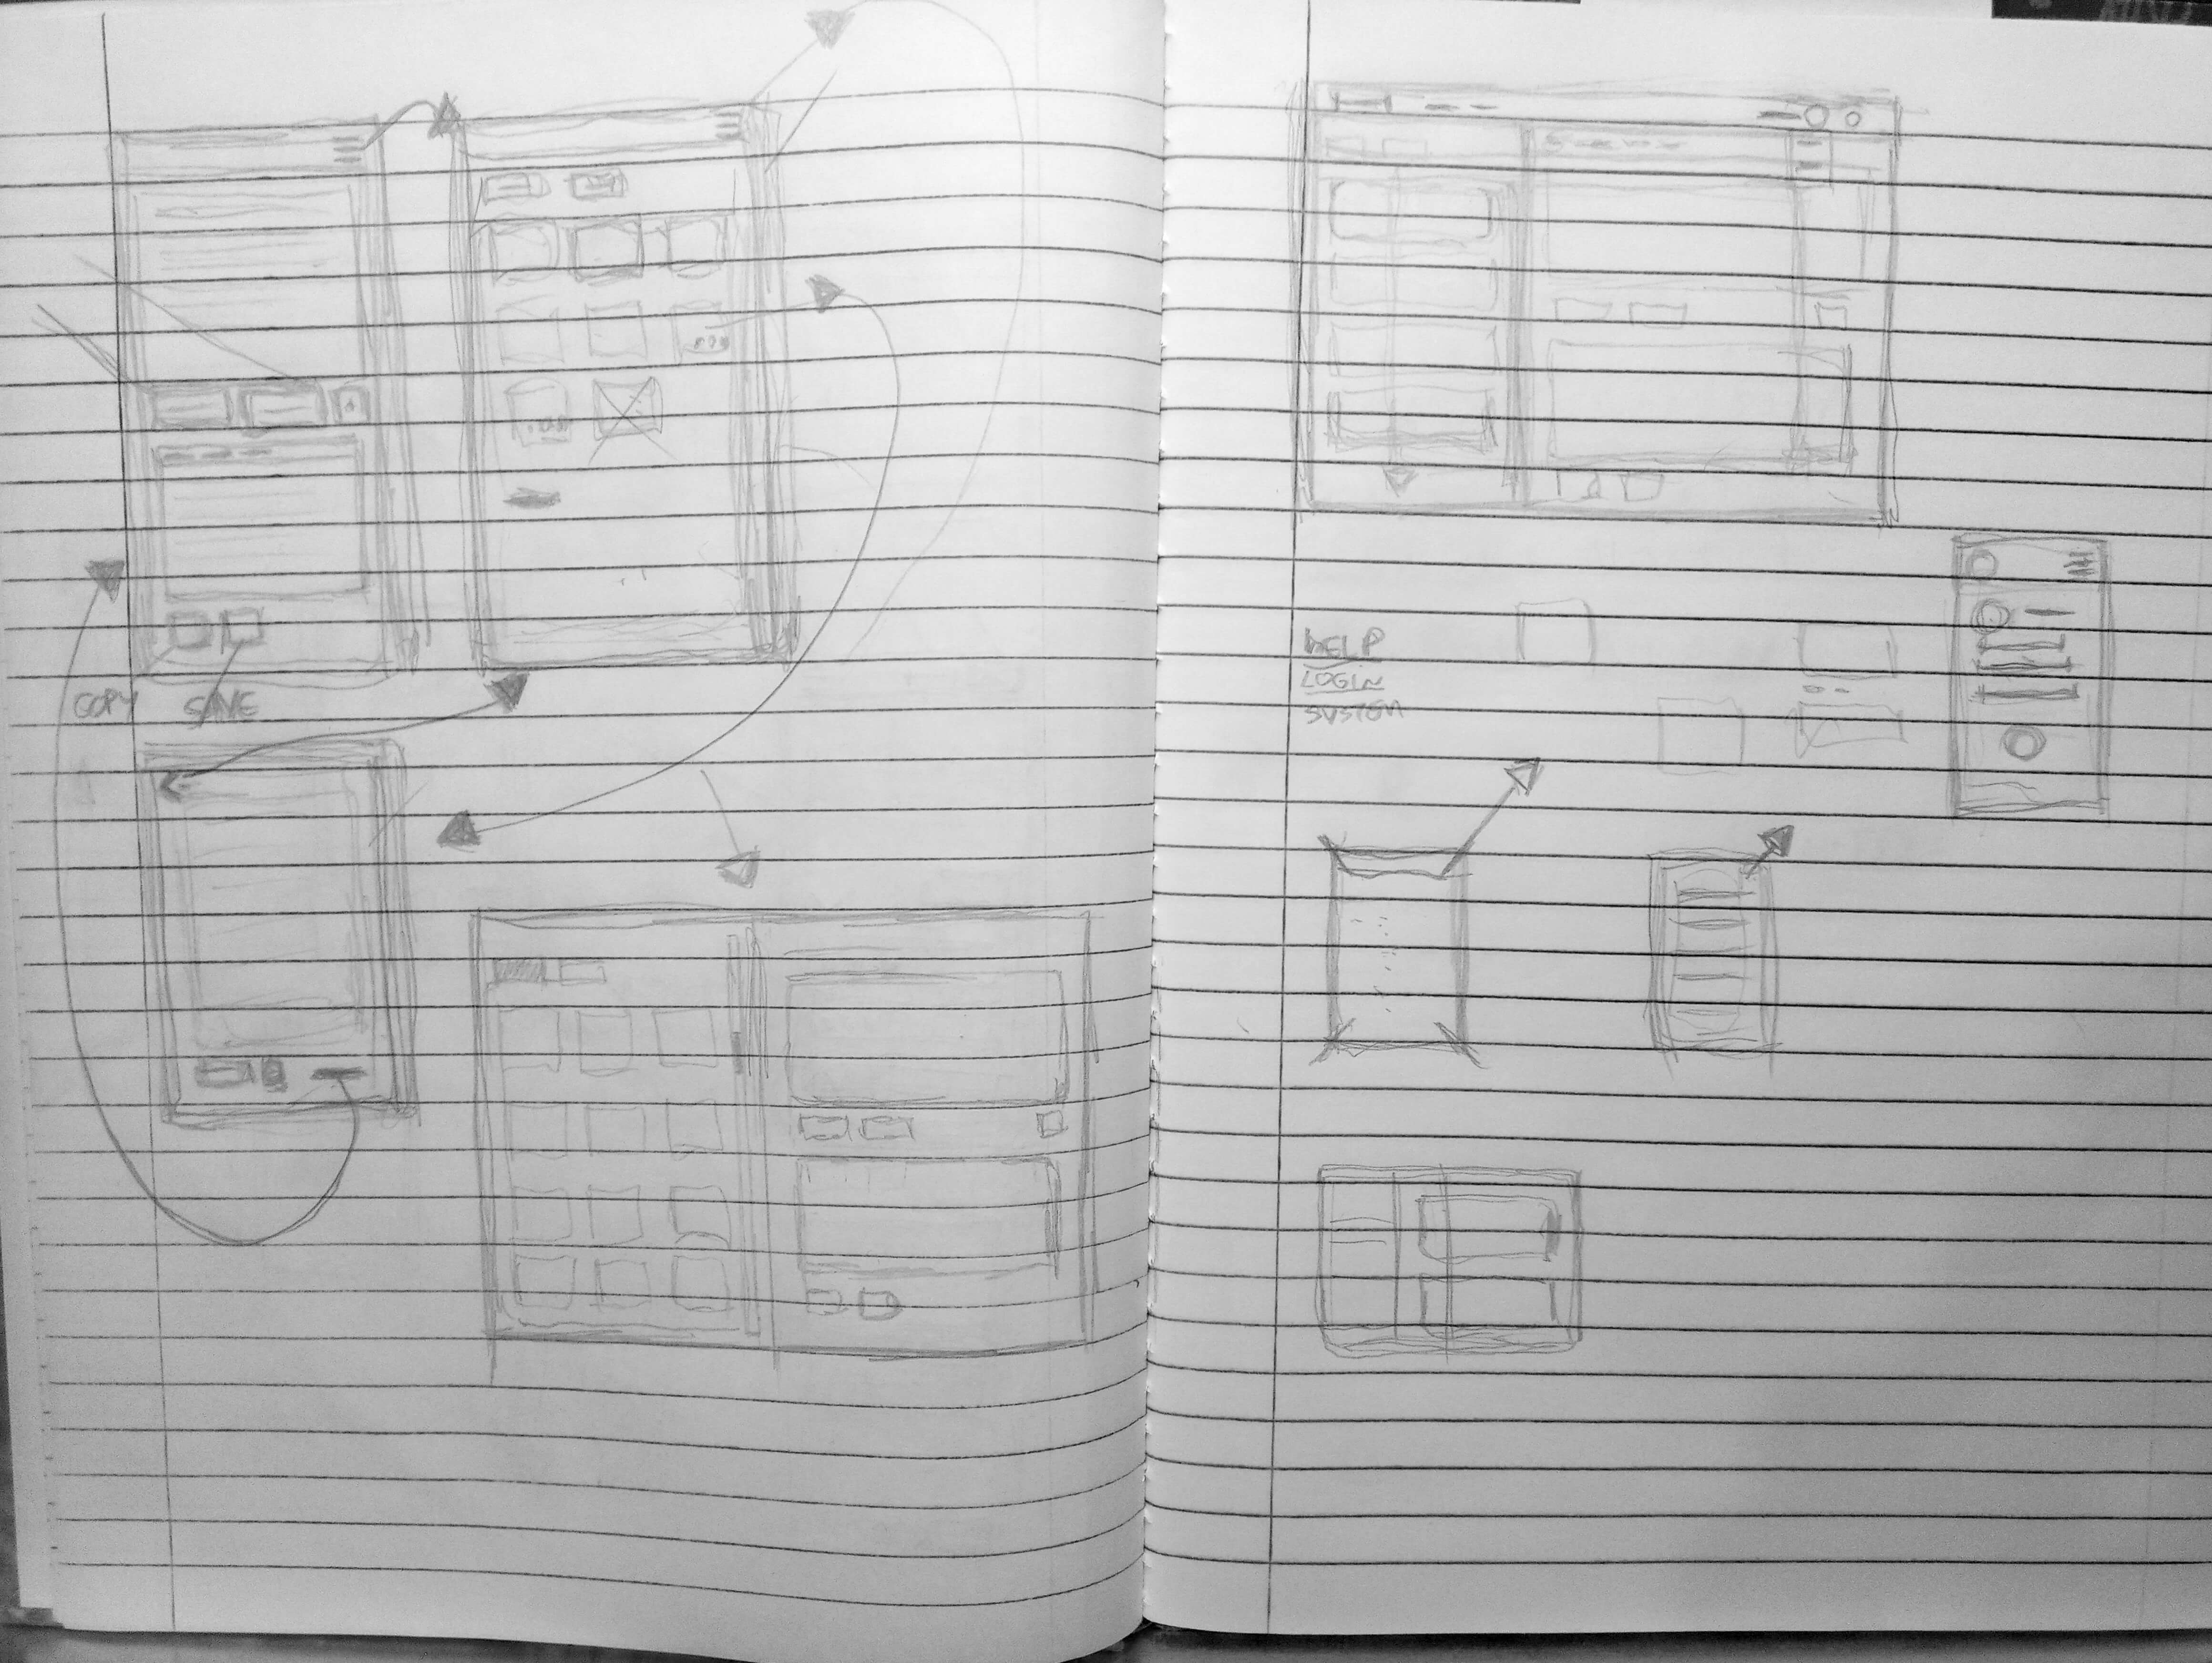 COPY SAVE
HELP
LOGIN
SYSTEM